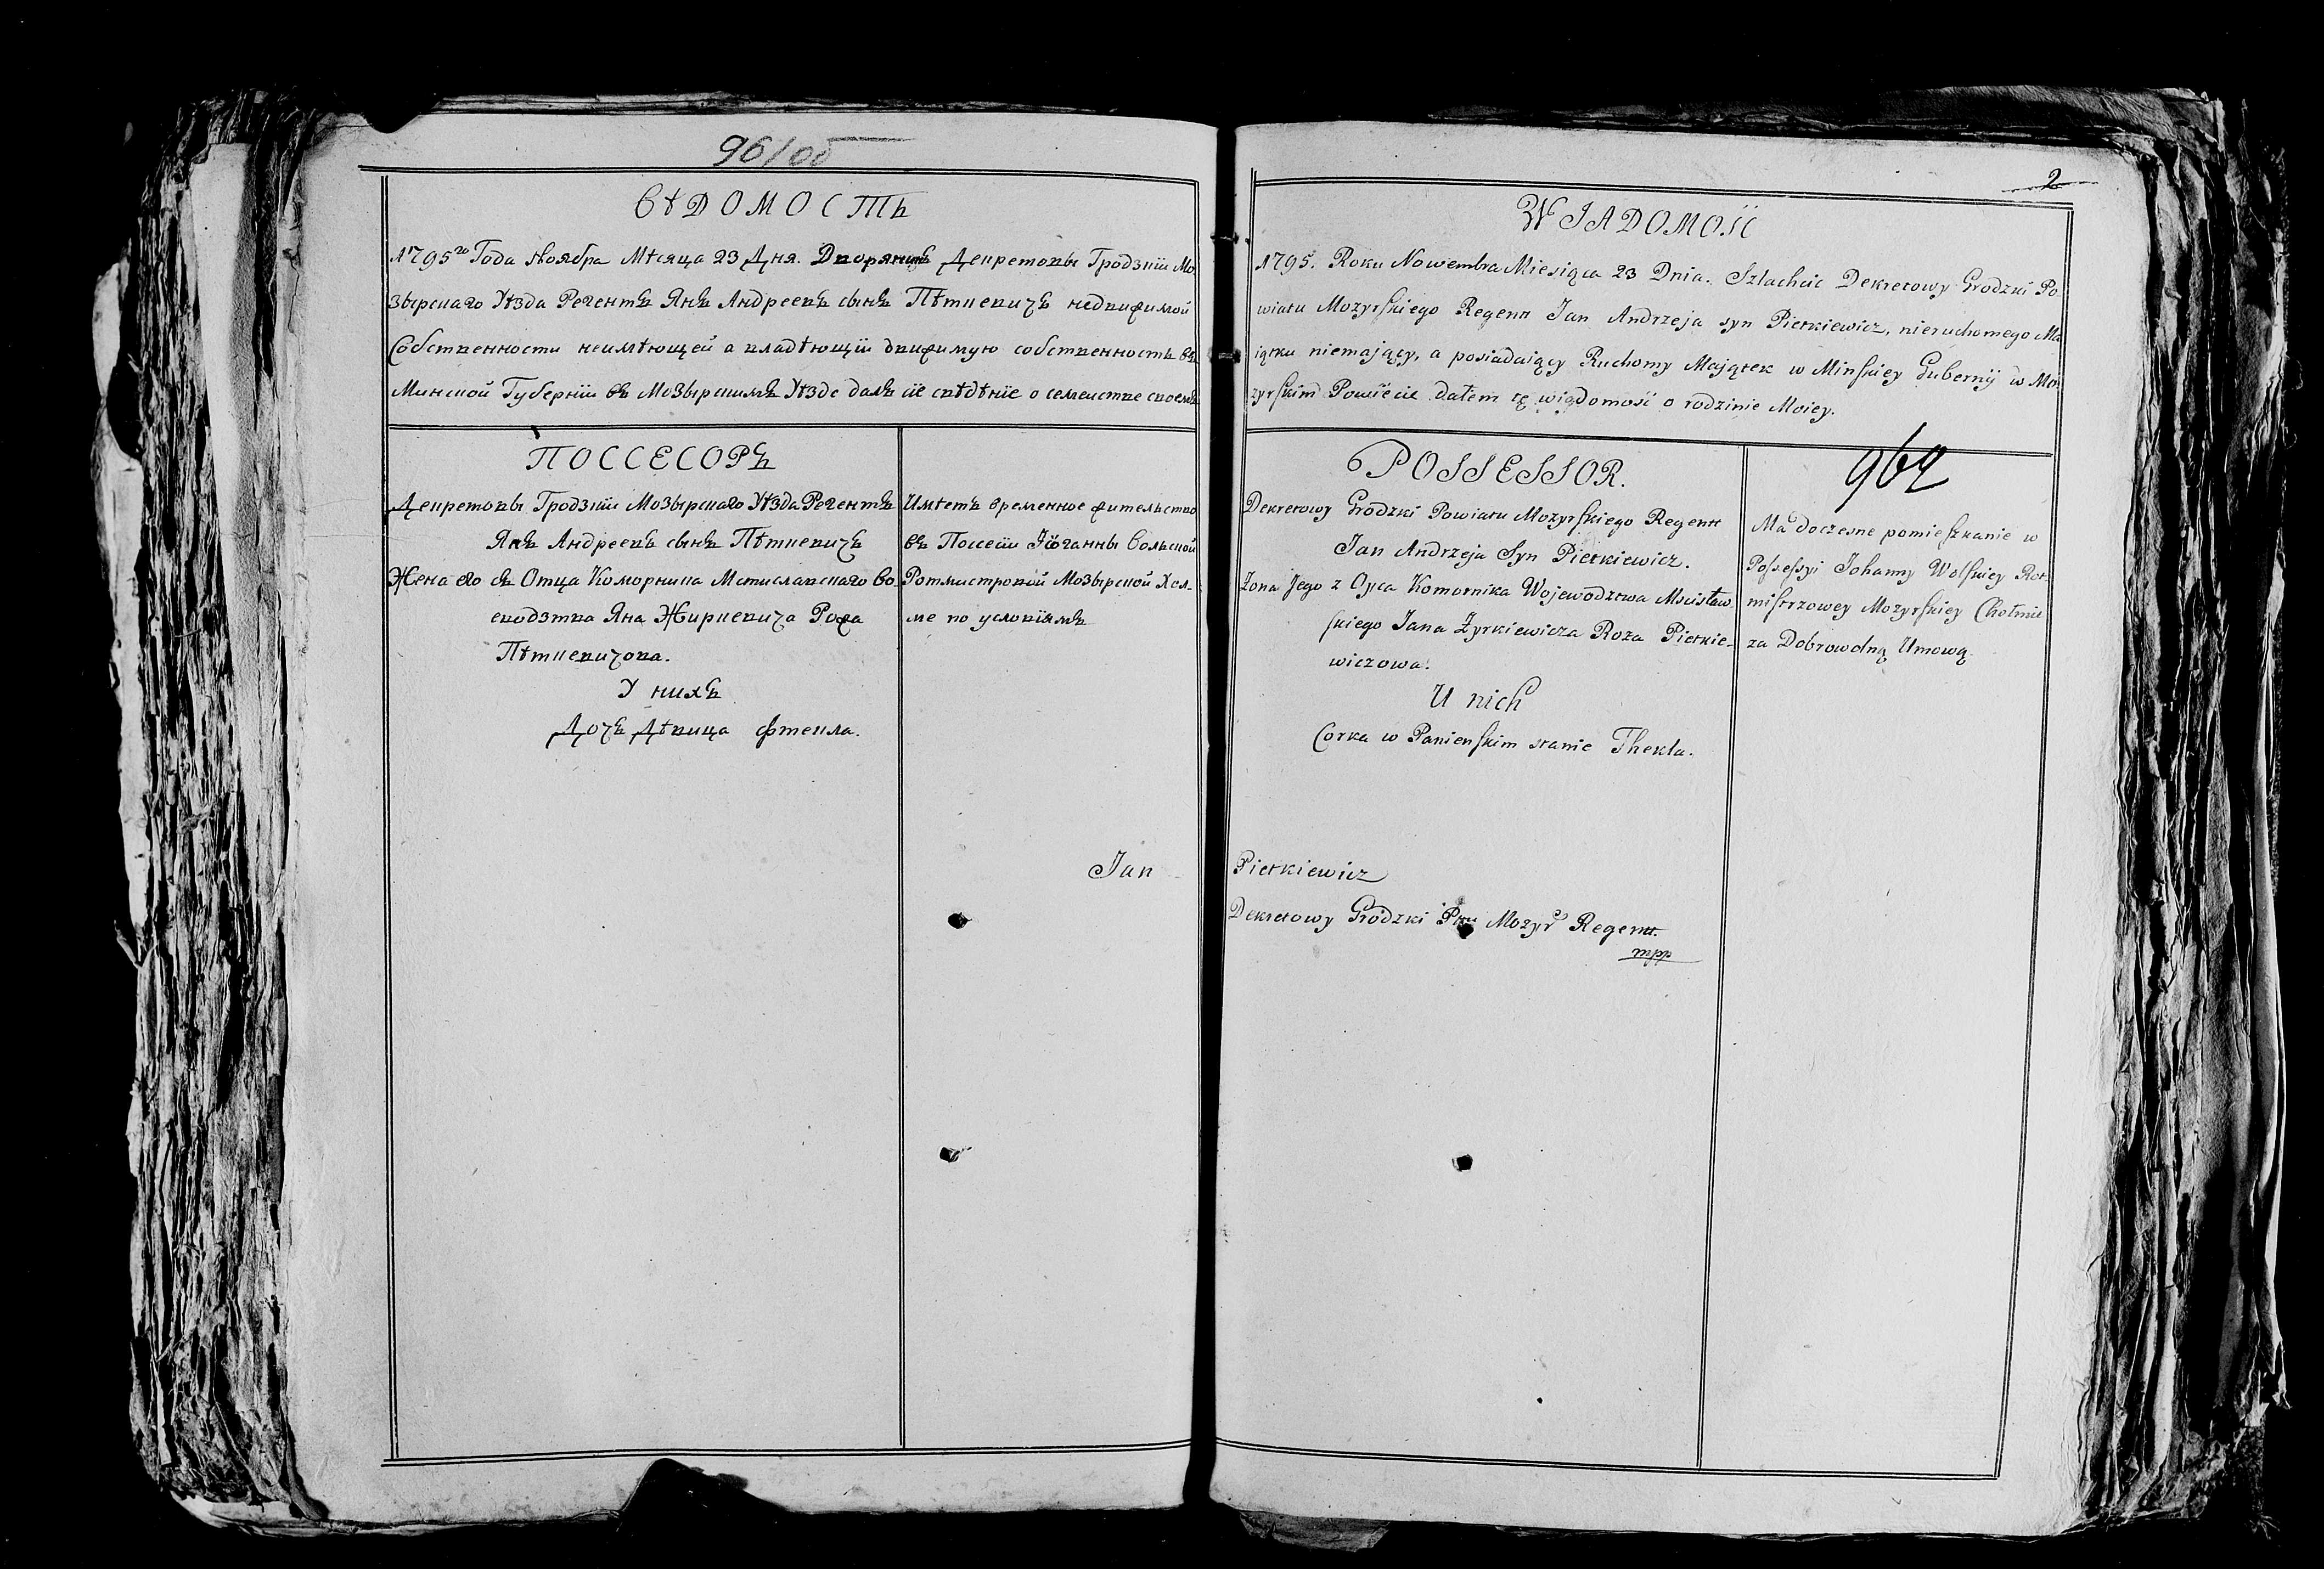 96/об
ВѢДОМОСТЬ
1795го Года Ноября Мѣсяца 23 Дня. Дворянинъ Декретовы Гродзкiи Мо-
зырскаго Уѣзда Регентъ Янъ Андреевъ сынъ Пѣткевичъ недвижимой
Собственности неимѣющей а владѣющiи движимую собственность въ
Минской Губернiи въ Мозырскимъ Уѣзде далъ сiе свѣдѣнiе о семействе своемъ
ПОССЕСОРЪ
Декретовы Гродзкiи Мозырскаго Уѣзда Регентъ
Янъ Андреевъ сынъ Пѣткевичъ
Жена его съ Отца Коморника Мстиславскаго Во-
еводзтва Яна Жиркевича Рожа
Пѣткевичова.
У нихъ
Дочъ Дѣвица Фтекла.
Имѣетъ временное жительство
въ Поссесiи Iоганны Вольской
Ротмистровой Мозырской Хол-
ме по условiямъ
Jan
2
WIADOMOŚĆ
1795. Roku Nowembra Miesiąca 23 Dnia. Szlachcic Dekretowy Grodzki Po-
wiatu Mozyrskiego Regent Jan Andrzeja syn Pietkiewicz, nieruchomego Ma-
iątku niemający, a posiadaiący Ruchomy Majątek w Minskiey Gubernij w Mo-
zyrskim Powiecie dałem tę wiadomość o rodzinie Moiey.
POSSESSOR.
962
Dekretowy Grodzki Powiatu Mozyrskiego Regent
Jan Andrzeja Syn Pietkiewicz.
Żona Jego z Oyca Komornika Wojewodztwa Mscisław-
skiego Jana Żyrkiewicza Roza Pietkie-
wiczowa.
U nich
Corka w Panienskim stanie Thekla.
Ma doczesne pomieszkanie w
Possessyi Johanny Wolskiey Rot-
mistrzowey Mozyrskiey Chołmie
za Dobrowolną Umową
Pietkiewicz
Dekretowy Grodzki Ptu Mozyr Regent.
mpp